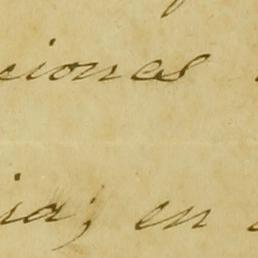 ciones
ia; en